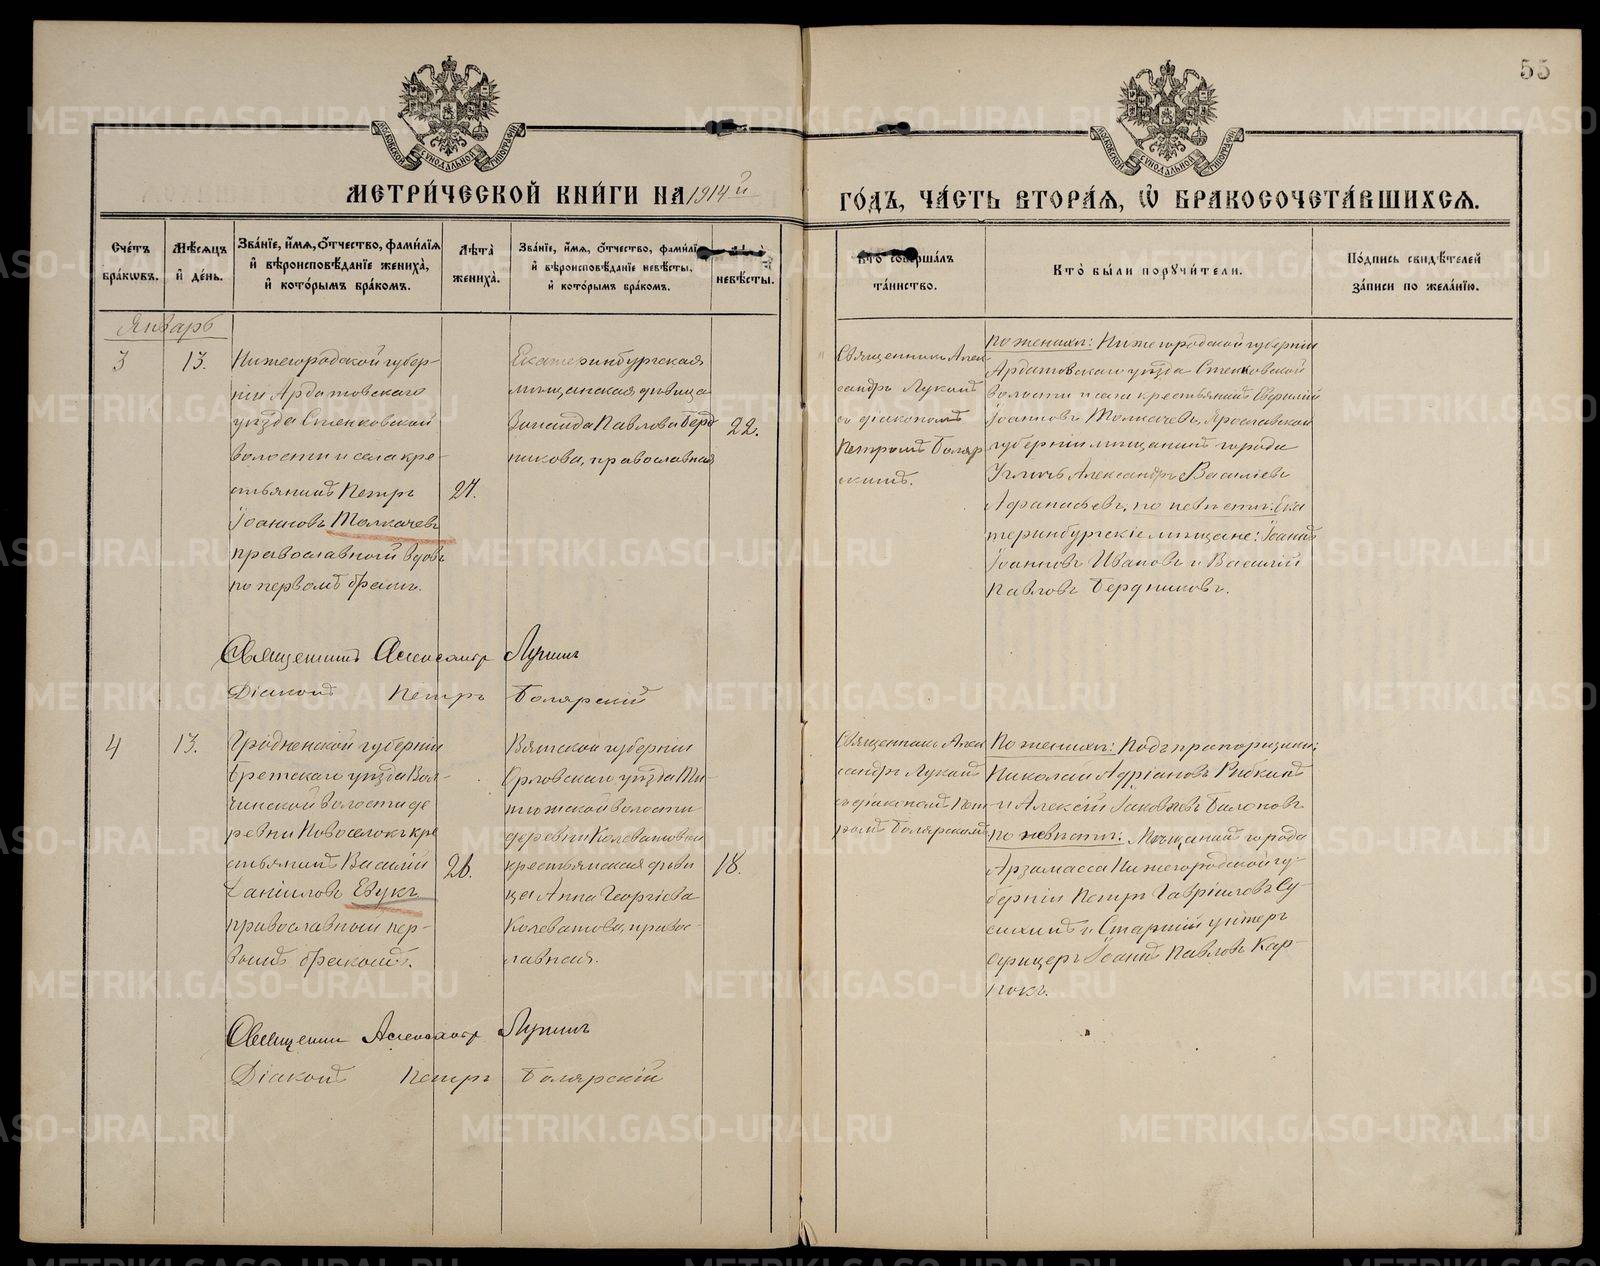 55
МОСКОВСКОЙ СѴНОДАЛЬНОЙ ТИПОГРАФІИ
МОСКОВСКОЙ СѴНОДАЛЬНОЙ ТИПОГРАФІИ
МЕТРИ́ЧЕСКОЙ КНИ́ГИ НА 1914 й
ГО́ДЪ, ЧА́СТЬ ВТОРА́Я, Ѡ҆ БРАКОСОЧЕТА́ВШИХСЯ.
Сче́тъ бра́кѡвъ.
Мѣ́сяцъ и҆ де́нь.
Зва́нїе, и҆́мя, ѻ҆́тчество, фами́лїя и҆ вѣроисповѣ́данїе жениха̀, и҆ кото́рымъ бра́комъ.
Лѣ́та жениха̀.
Зва́нїе, и҆́мя, ѻ҆́тчество, фами́лїя и҆ вѣроисповѣ́данїе невѣ́сты, и҆ кото́рымъ бра́комъ.
невѣ́сты.
Кто̀ соверша́лъ та́инство.
Кто̀ бы́ли порꙋчи́тели.
По́дпись свидѣ́телей за́писи по жела́нїю.
Январь
3
13.
Нижегородской губер-
ніи Ардатовскаго
уѣзда Стексовской
волости и села кре-
стьянинъ Петръ
Іоанновъ Толкачевъ
православный вдовъ
по первомъ бракѣ.
27.
Екатеринбургская
мѣщанская дѣвица
Зинаида Павлова Берд
никова, православная
22.
Священникъ Алек
сандръ Лукинъ
съ діакономъ
Петромъ Боляр
скимъ.
По женихѣ: Нижегородской губерніи
Ардатовскаго уѣзда Стексовской
волости и села крестьянинъ
Іоанновъ Толкачевъ, Ярославской
губерніи мѣщанинъ города
Угличъ Александръ Васильевъ
Афанасьевъ, по невѣстѣ: Ека
теринбургскіе мѣщане: Іоаннъ
Іоанновъ Ивановъ и Василій
Павловъ Бердниковъ.
Священникъ Александръ Лукинъ
Діаконъ Петръ Болярскій
4
13.
Гродненской губерніи
Брестскаго уѣзда Вол-
чинской волости де
ревни Новоселокъ кре
стьянинъ Василій
Даніиловъ Евукъ
православный пер-
вымъ бракомъ.
26.
Вятской губерніи
Орловскаго уѣзда
волости
деревни Колеватовской
крестьянская дѣви
ца Анна Георгіева
Колеватова, правос-
лавная.
18.
Священникъ Алек
сандръ Лукинъ
съ діакономъ Пет
ромъ Болярскимъ
По женихѣ: Подпрапорщики:
Николай Адріановъ Рыбкинъ
и Алексій Іаковлевъ
по невѣстѣ: Мѣщанинъ города
Арзамасса Нижегородской гу-
берніи Петръ Гавріиловъ Су-
и Старшій унтеръ
офицеръ Іоаннъ Павловъ Кар-
пукъ.
Священникъ Александръ Лукинъ
Діаконъ Петръ Болярскій
METRIKI.GASO-URAL.RU